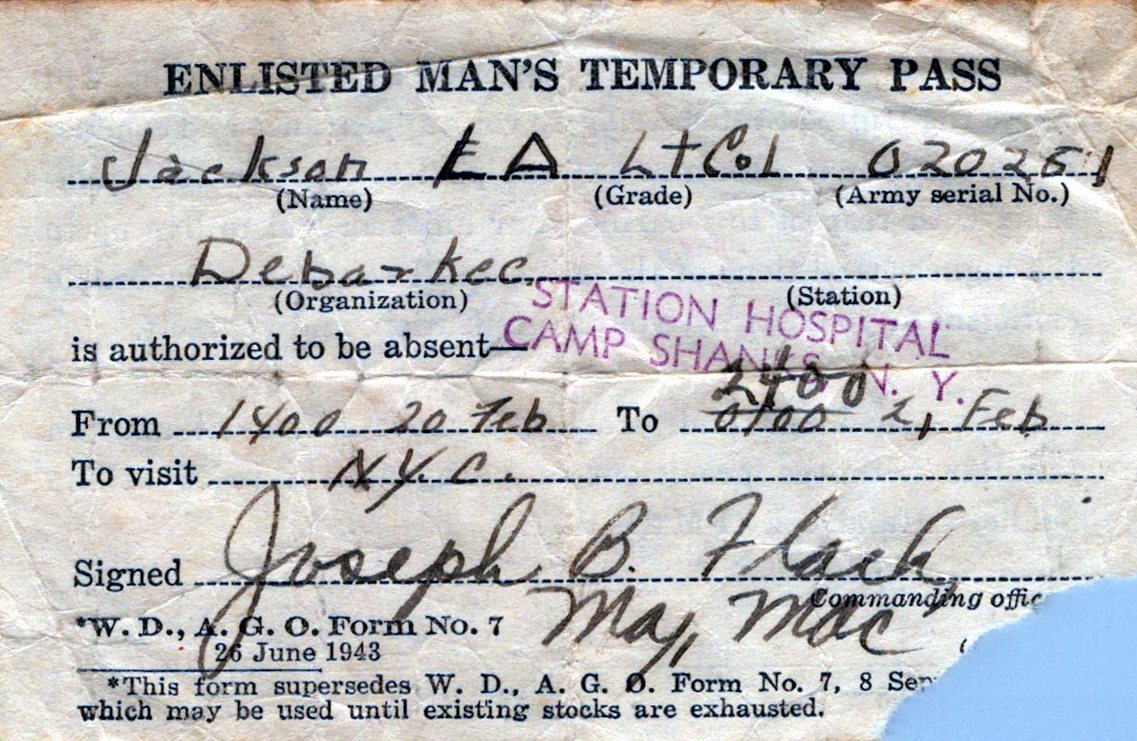 ENLISTED MAN'S TEMPORARY PASS
Jackson E A Lt Col 0202511
(Name) (Grade) (Army serial No.)
Debarkee
(Organization) (Station)
STATION HOSPITAL
CAMP SHANKS N. Y.
is authorized to be absent—
2400
From 1400 20 Feb To 0100 21 Feb
To visit N.Y.C.
Signed Joseph B. Flack
Commanding offic
Maj, MAC
*W. D., A. G. O. Form No. 7
26 June 1943
*This form supersedes W. D., A. G. O. Form No. 7, 8 Sep
which may be used until existing stocks are exhausted.